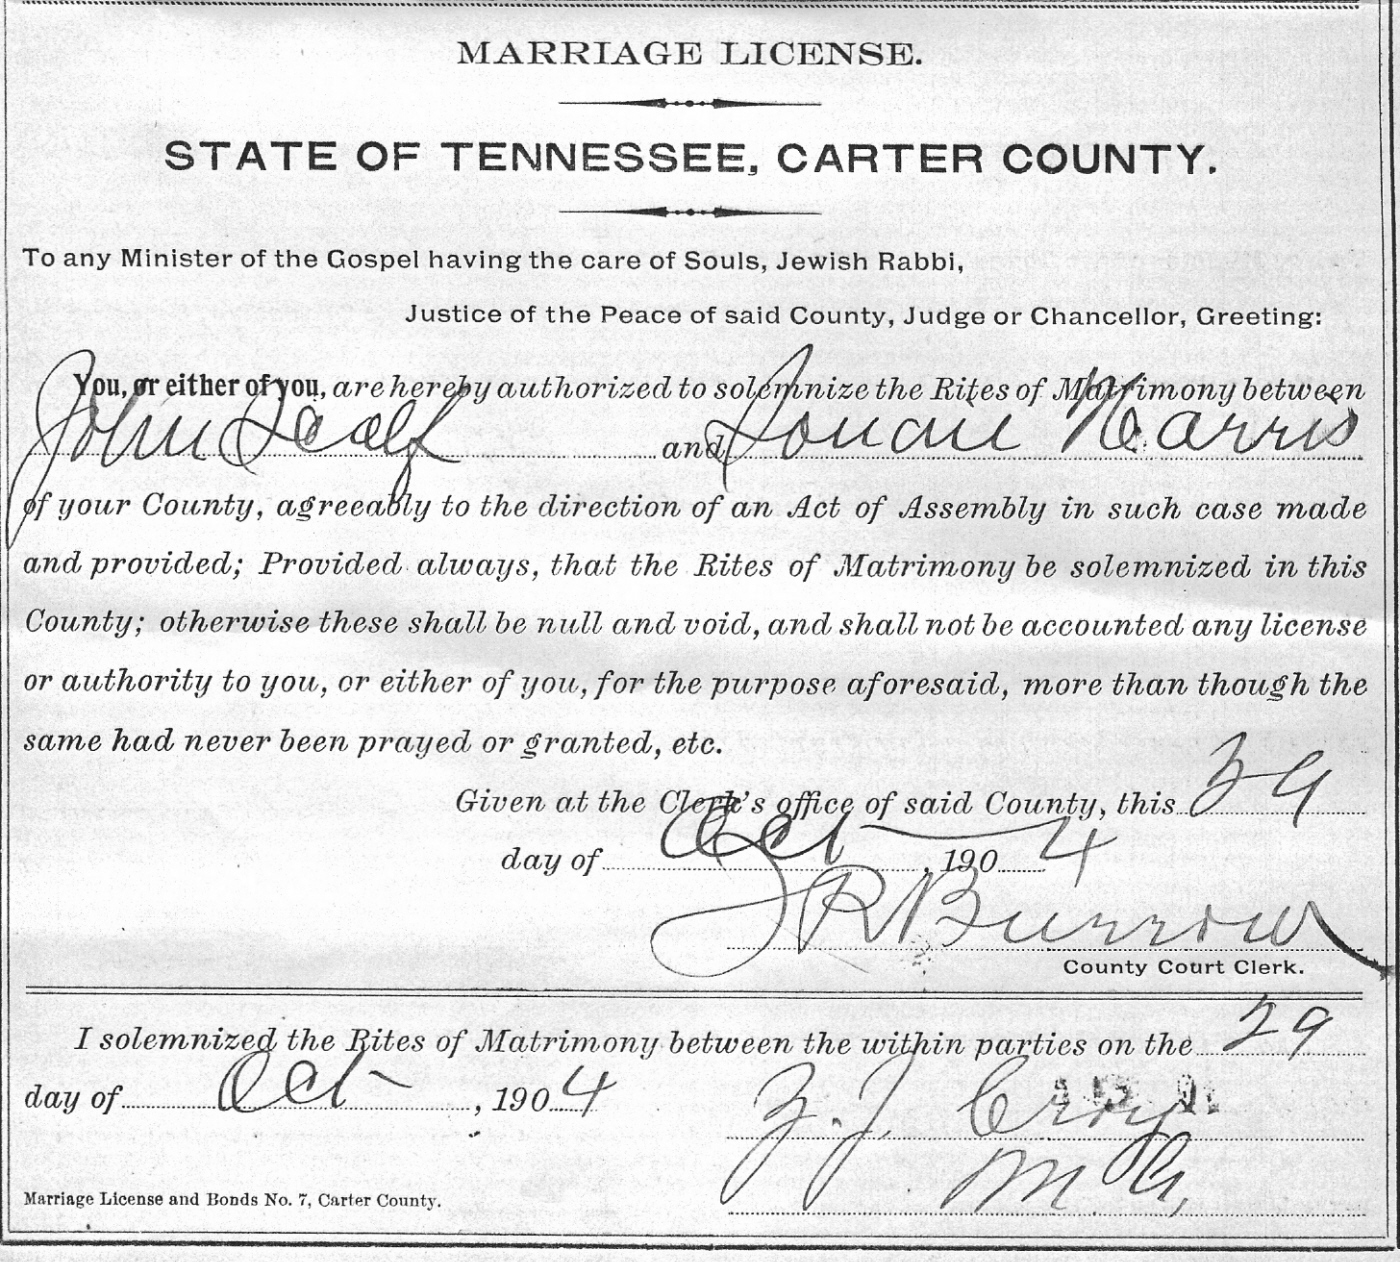 MARRIAGE LICENSE.
STATE OF TENNESSEE, CARTER COUNTY.
To any Minister of the Gospel having the care of Souls, Jewish Rabbi,
Justice of the Peace of said County, Judge or Chancellor, Greeting:
You, or either of you, are hereby authorized to solemnize the Rites of Matrimony between
John Scalf and Harris
of your County, agreeably to the direction of an Act of Assembly in such case made
and provided; Provided always, that the Rites of Matrimony be solemnized in this
County; otherwise these shall be null and void, and shall not be accounted any license
or authority to you, or either of you, for the purpose aforesaid, more than though the
same had never been prayed or granted, etc.
Given at the Clerk's office of said County, this 29
day of Oct, 1904
J R Burrow
County Court Clerk.
I solemnized the Rites of Matrimony between the within parties on the 29
day of Oct, 1904
J.
M G,
Marriage License and Bonds No. 7, Carter County.